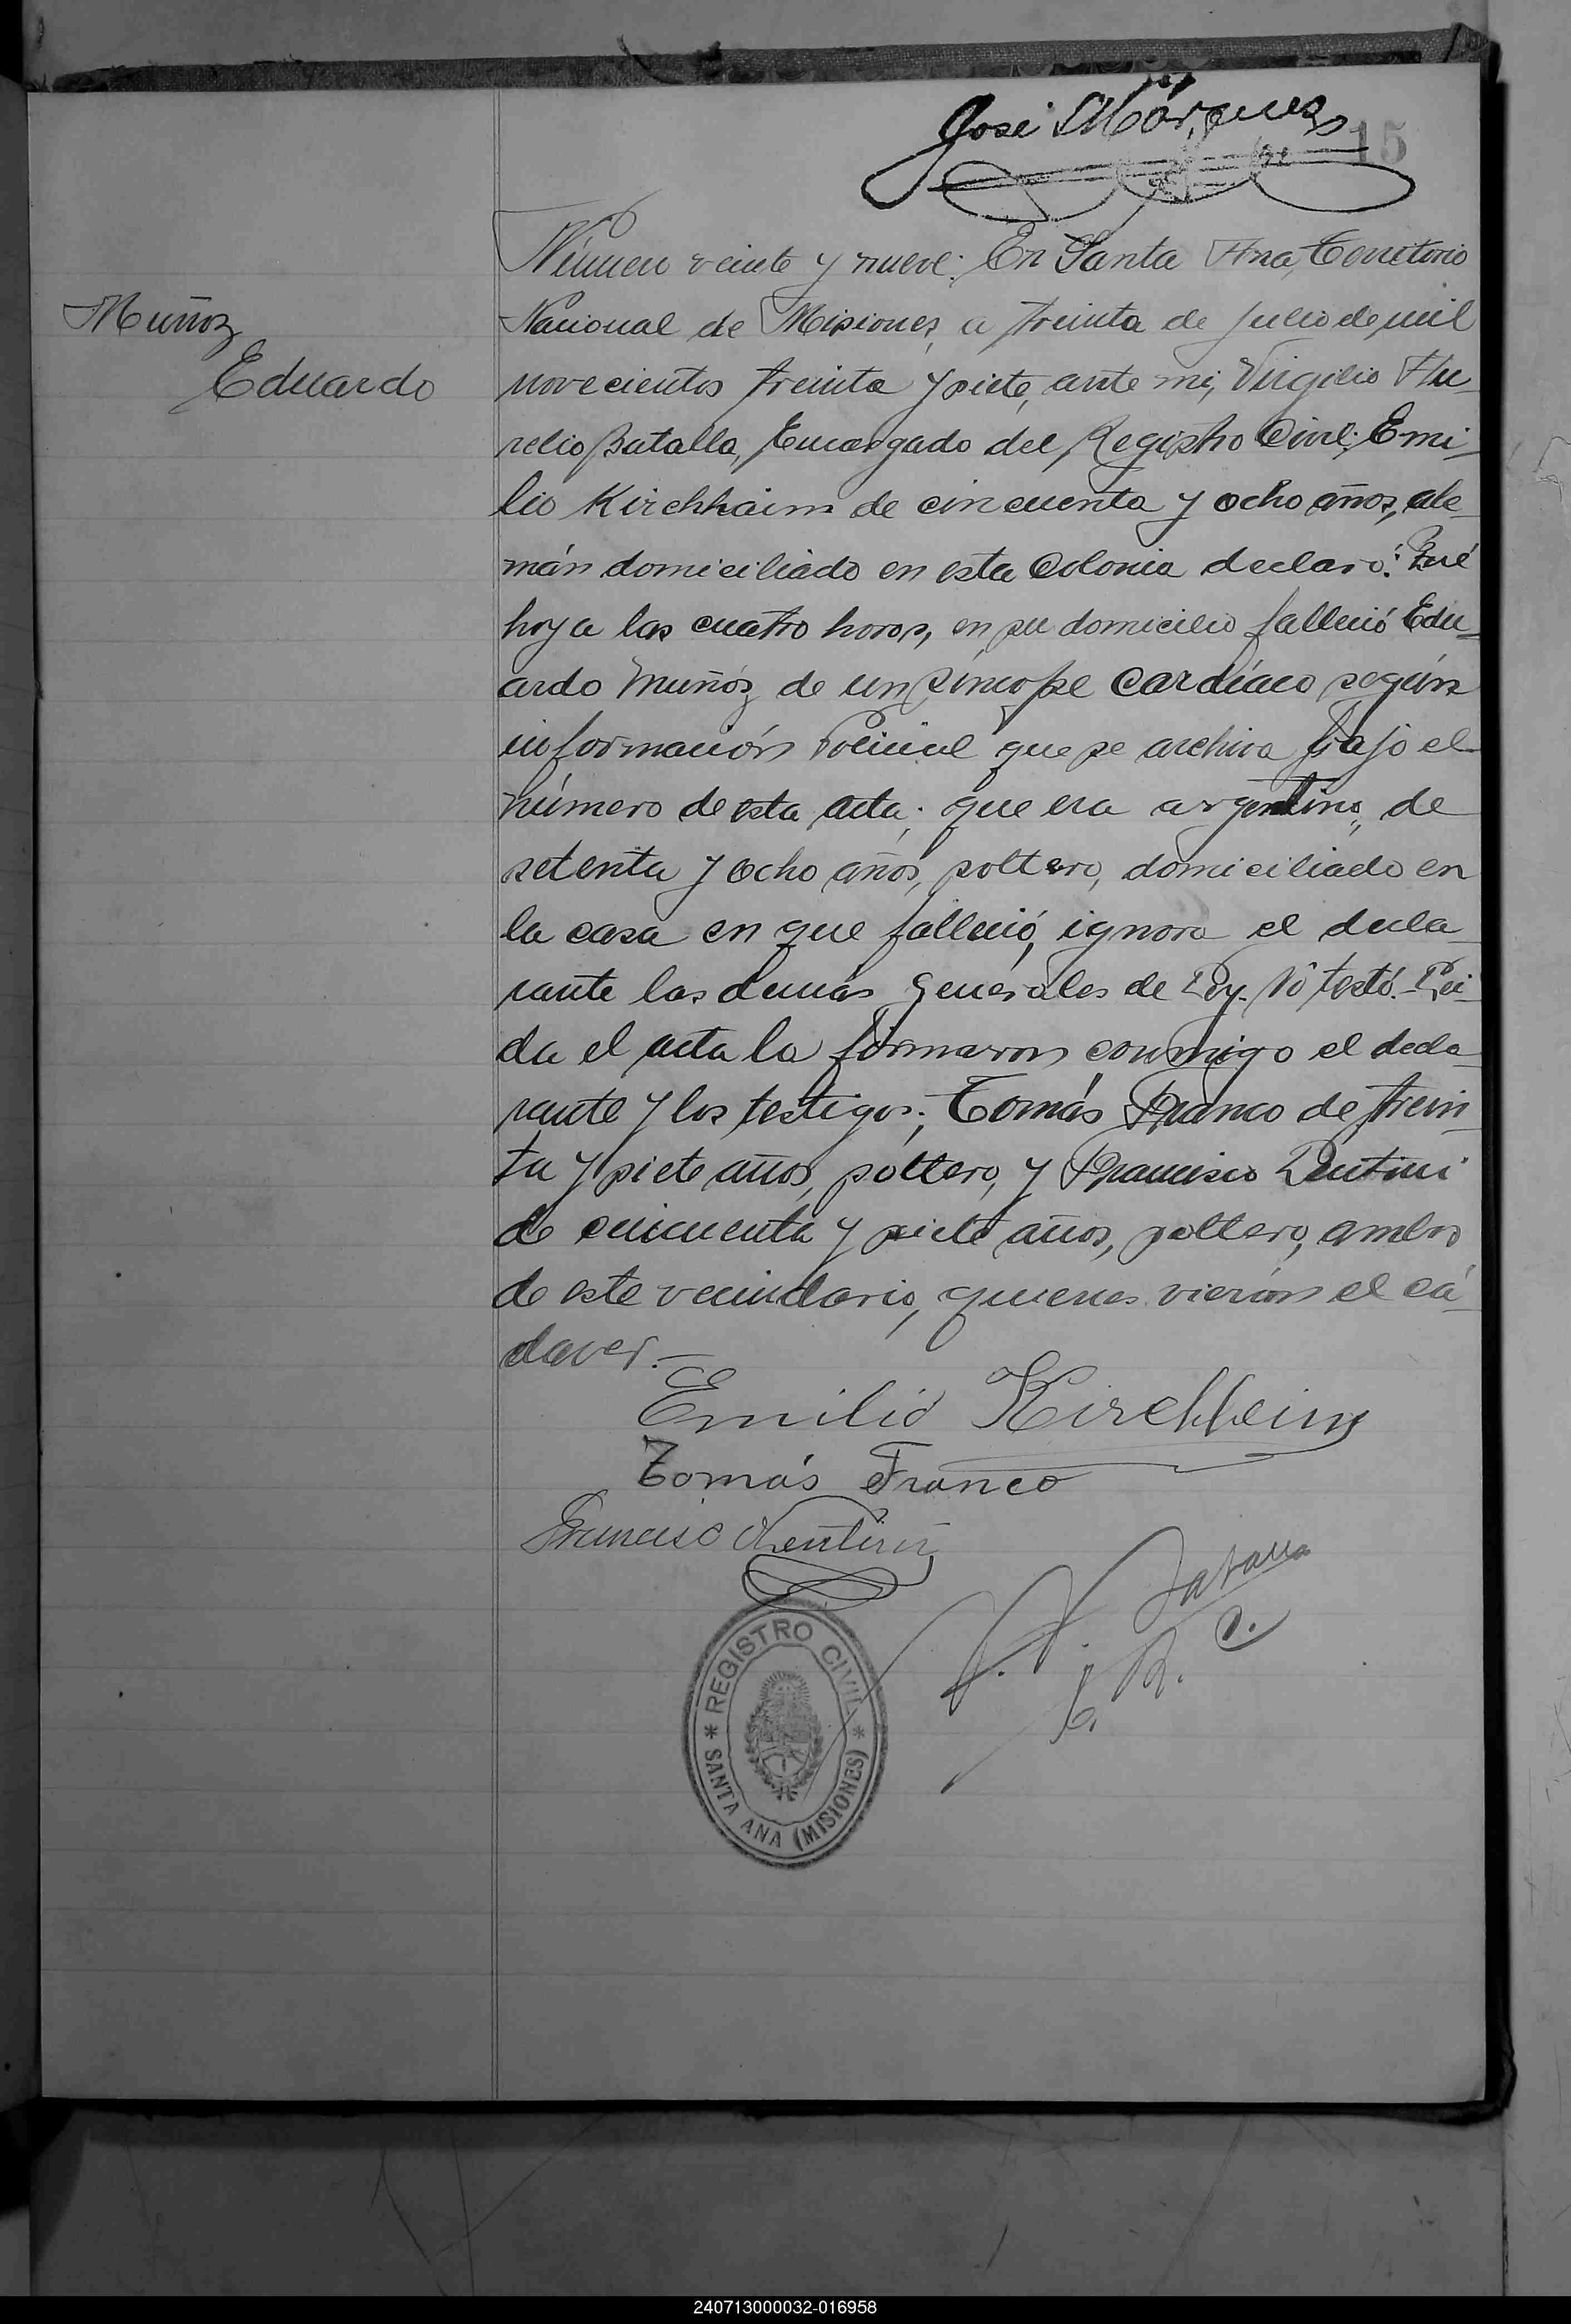 José Márquez
15
Número veinte y nueve: En Santa Ana, Territorio
Muñoz
Nacional de Misiones, a treinta de Julio de mil
Eduardo
novecientos treinta y siete, ante mi, Virgilio Au-
relio Batalla, Encargado del Registro Civil; Emi-
lio Kirchhaim de cincuenta y ocho años, ale-
mán domiciliado en esta Colonia declaró: Qué
hoy a las cuatro horas, en su domicilio falleció Edu-
ardo Muñóz de un síncope cardíaco según
información Policial que se archiva bajo el
número de esta acta; que era argentino, de
setenta y ocho años, soltero, domiciliado en
la casa en que falleció, ignora el decla-
rante las demás generales de Ley. No testó. Leí-
da el acta la firmaron conmigo el decla-
rante y los testigos; Tomás Franco de trein-
ta y siete años, soltero, y Francisco
de cincuenta y siete años, soltero, ambos
de este vecindario, quienes vieron el cá-
daver.—
Emilio Kirchheim
Tomás Franco
Francisco
V. A. Batalla
E. R. C.
* REGISTRO CIVIL *
SANTA ANA (MISIONES)
240713000032-016958